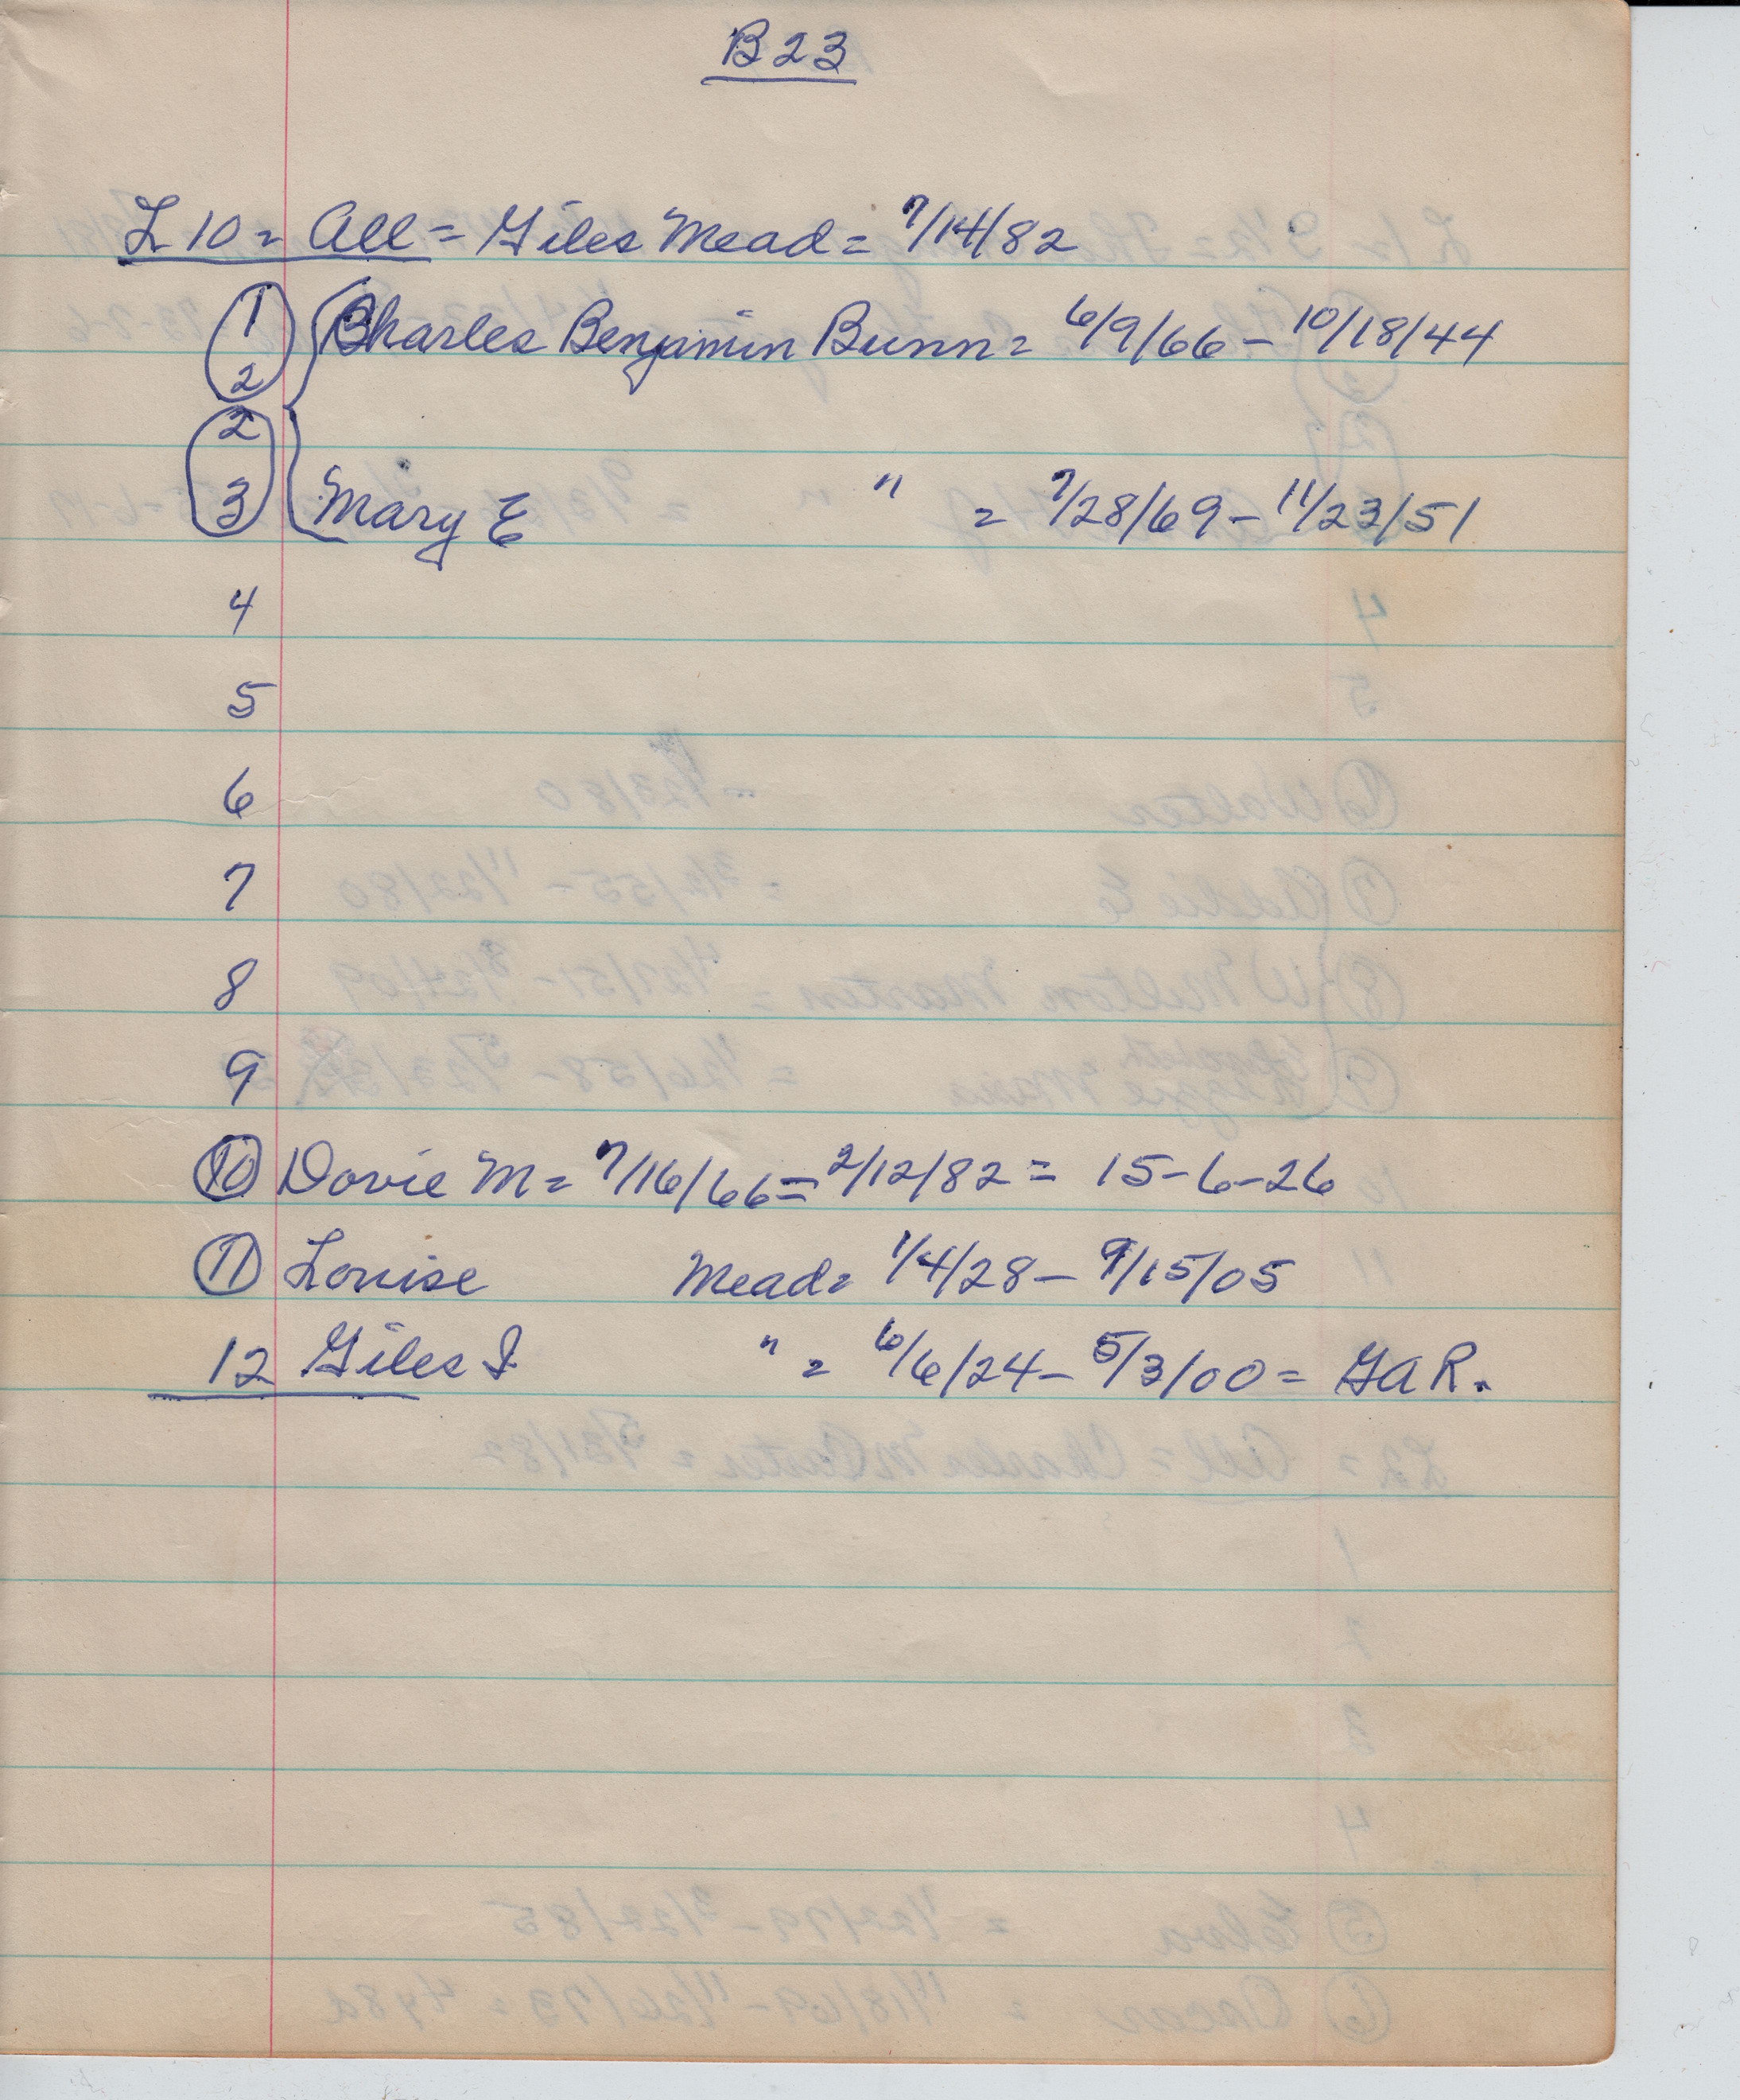 B23
L 10 = All = Giles Mead = 7/14/82
1 Charles Benjamin Bunn = 6/9/66 - 10/18/44
2
2
3 Mary E " = 7/28/69 - 11/23/51
4
5
6
7
8
9
10 Dovie M = 7/16/66 = 2/12/82 = 15-6-26
11 Louise Mead = 1/4/28 - 9/15/05
12 Giles I " = 6/6/24 - 5/3/00 = GAR.